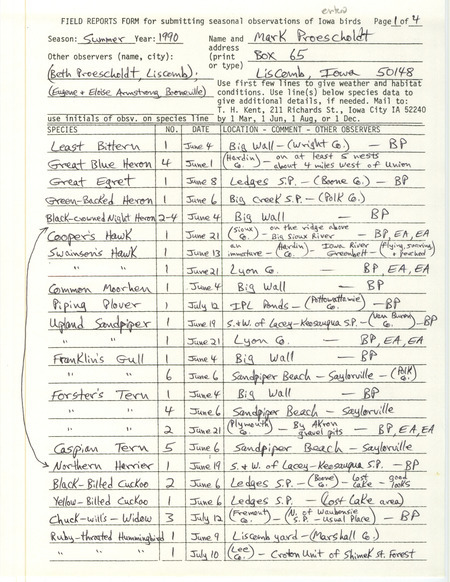 entered
FIELD REPORTS FORM for submitting seasonal observations of Iowa birds Page 1 of 4
Season: Summer Year: 1990 Name and address (print or type) Mark Proescholdt
Box 65
Liscomb, Iowa 50148
Other observers (name, city):
(Beth Proescholdt, Liscomb);
(Eugene & Eloise Armstrong, Booneville)
Use first few lines to give weather and habitat
conditions. Use line(s) below species data to
give additional details, if needed. Mail to:
T. H. Kent, 211 Richards St., Iowa City IA 52240
use initials of obsv. on species line by 1 Mar, 1 Jun, 1 Aug, or 1 Dec.
SPECIES NO. DATE LOCATION - COMMENT - OTHER OBSERVERS
Least Bittern 1 June 4 Big Wall - (Wright Co.) - BP
Great Blue Heron 4 June 1 (Hardin Co.) - on at least 5 nests about 4 miles west of Union
Great Egret 1 June 8 Ledges S.P. - (Boone Co.) - BP
Green-Backed Heron 1 June 6 Big Creek S.P. - (Polk Co.)
Black-crowned Night Heron 2-4 June 4 Big Wall - BP
Cooper's Hawk 1 June 21 (Sioux Co.) - on the ridge above Big Sioux River - BP, EA, EA
Swainson's Hawk 1 June 13 an immature - (Hardin Co.) - Iowa River Greenbelt - (flying, soaring & perched)
" " 1 June 21 Lyon Co. - BP, EA, EA
Common Moorhen 1 June 4 Big Wall - BP
Piping Plover 1 July 12 IPL Ponds - (Pottawattamie Co.) - BP
Upland Sandpiper 1 June 19 S. & W. of Lacey-Keosauqua S.P. - (Van Buren Co.) - BP
" " 1 June 21 Lyon Co. - BP, EA, EA
Franklin's Gull 1 June 4 Big Wall - BP
" " 6 June 6 Sandpiper Beach - Saylorville - (Polk Co.)
Forster's Tern 1 June 4 Big Wall - BP
" " 4 June 6 Sandpiper Beach - Saylorville
" " 2 June 21 (Plymouth Co.) - By Akron gravel pits - BP, EA, EA
Caspian Tern 5 June 6 Sandpiper Beach - Saylorville
Northern Harrier 1 June 19 S. & W. of Lacey-Keosauqua S.P. - BP
Black-Billed Cuckoo 2 June 6 Ledges S.P. - (Boone Co.) - Lost Lake - good looks
Yellow-Billed Cuckoo 1 June 6 Ledges S.P. - (Lost Lake area)
Chuck-will's-Widow 3 July 12 (Fremont Co.) - (N. of Waubonsie S.P. - Usual Place) - BP
Ruby-throated Hummingbird 1 June 9 Liscomb yard - (Marshall Co.)
" " 1 July 10 (Lee Co.) - Croton Unit of Shimek St. Forest